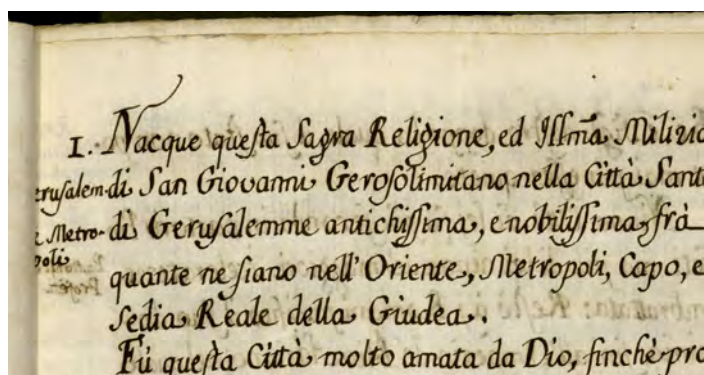 1. Nacque questa Sagra Religione, ed Illm̃a Milizia
erusalem- di San Giovanni Gerosolimitano nella Città Sant
e Metro- di Gerusalemme antichissima, e nobilissima, frà
poli quante ne siano nell'Oriente, Metropoli, Capo, e
Sedia Reale della Giudea.
Fù questa Città molto amata da Dio, finchè pro